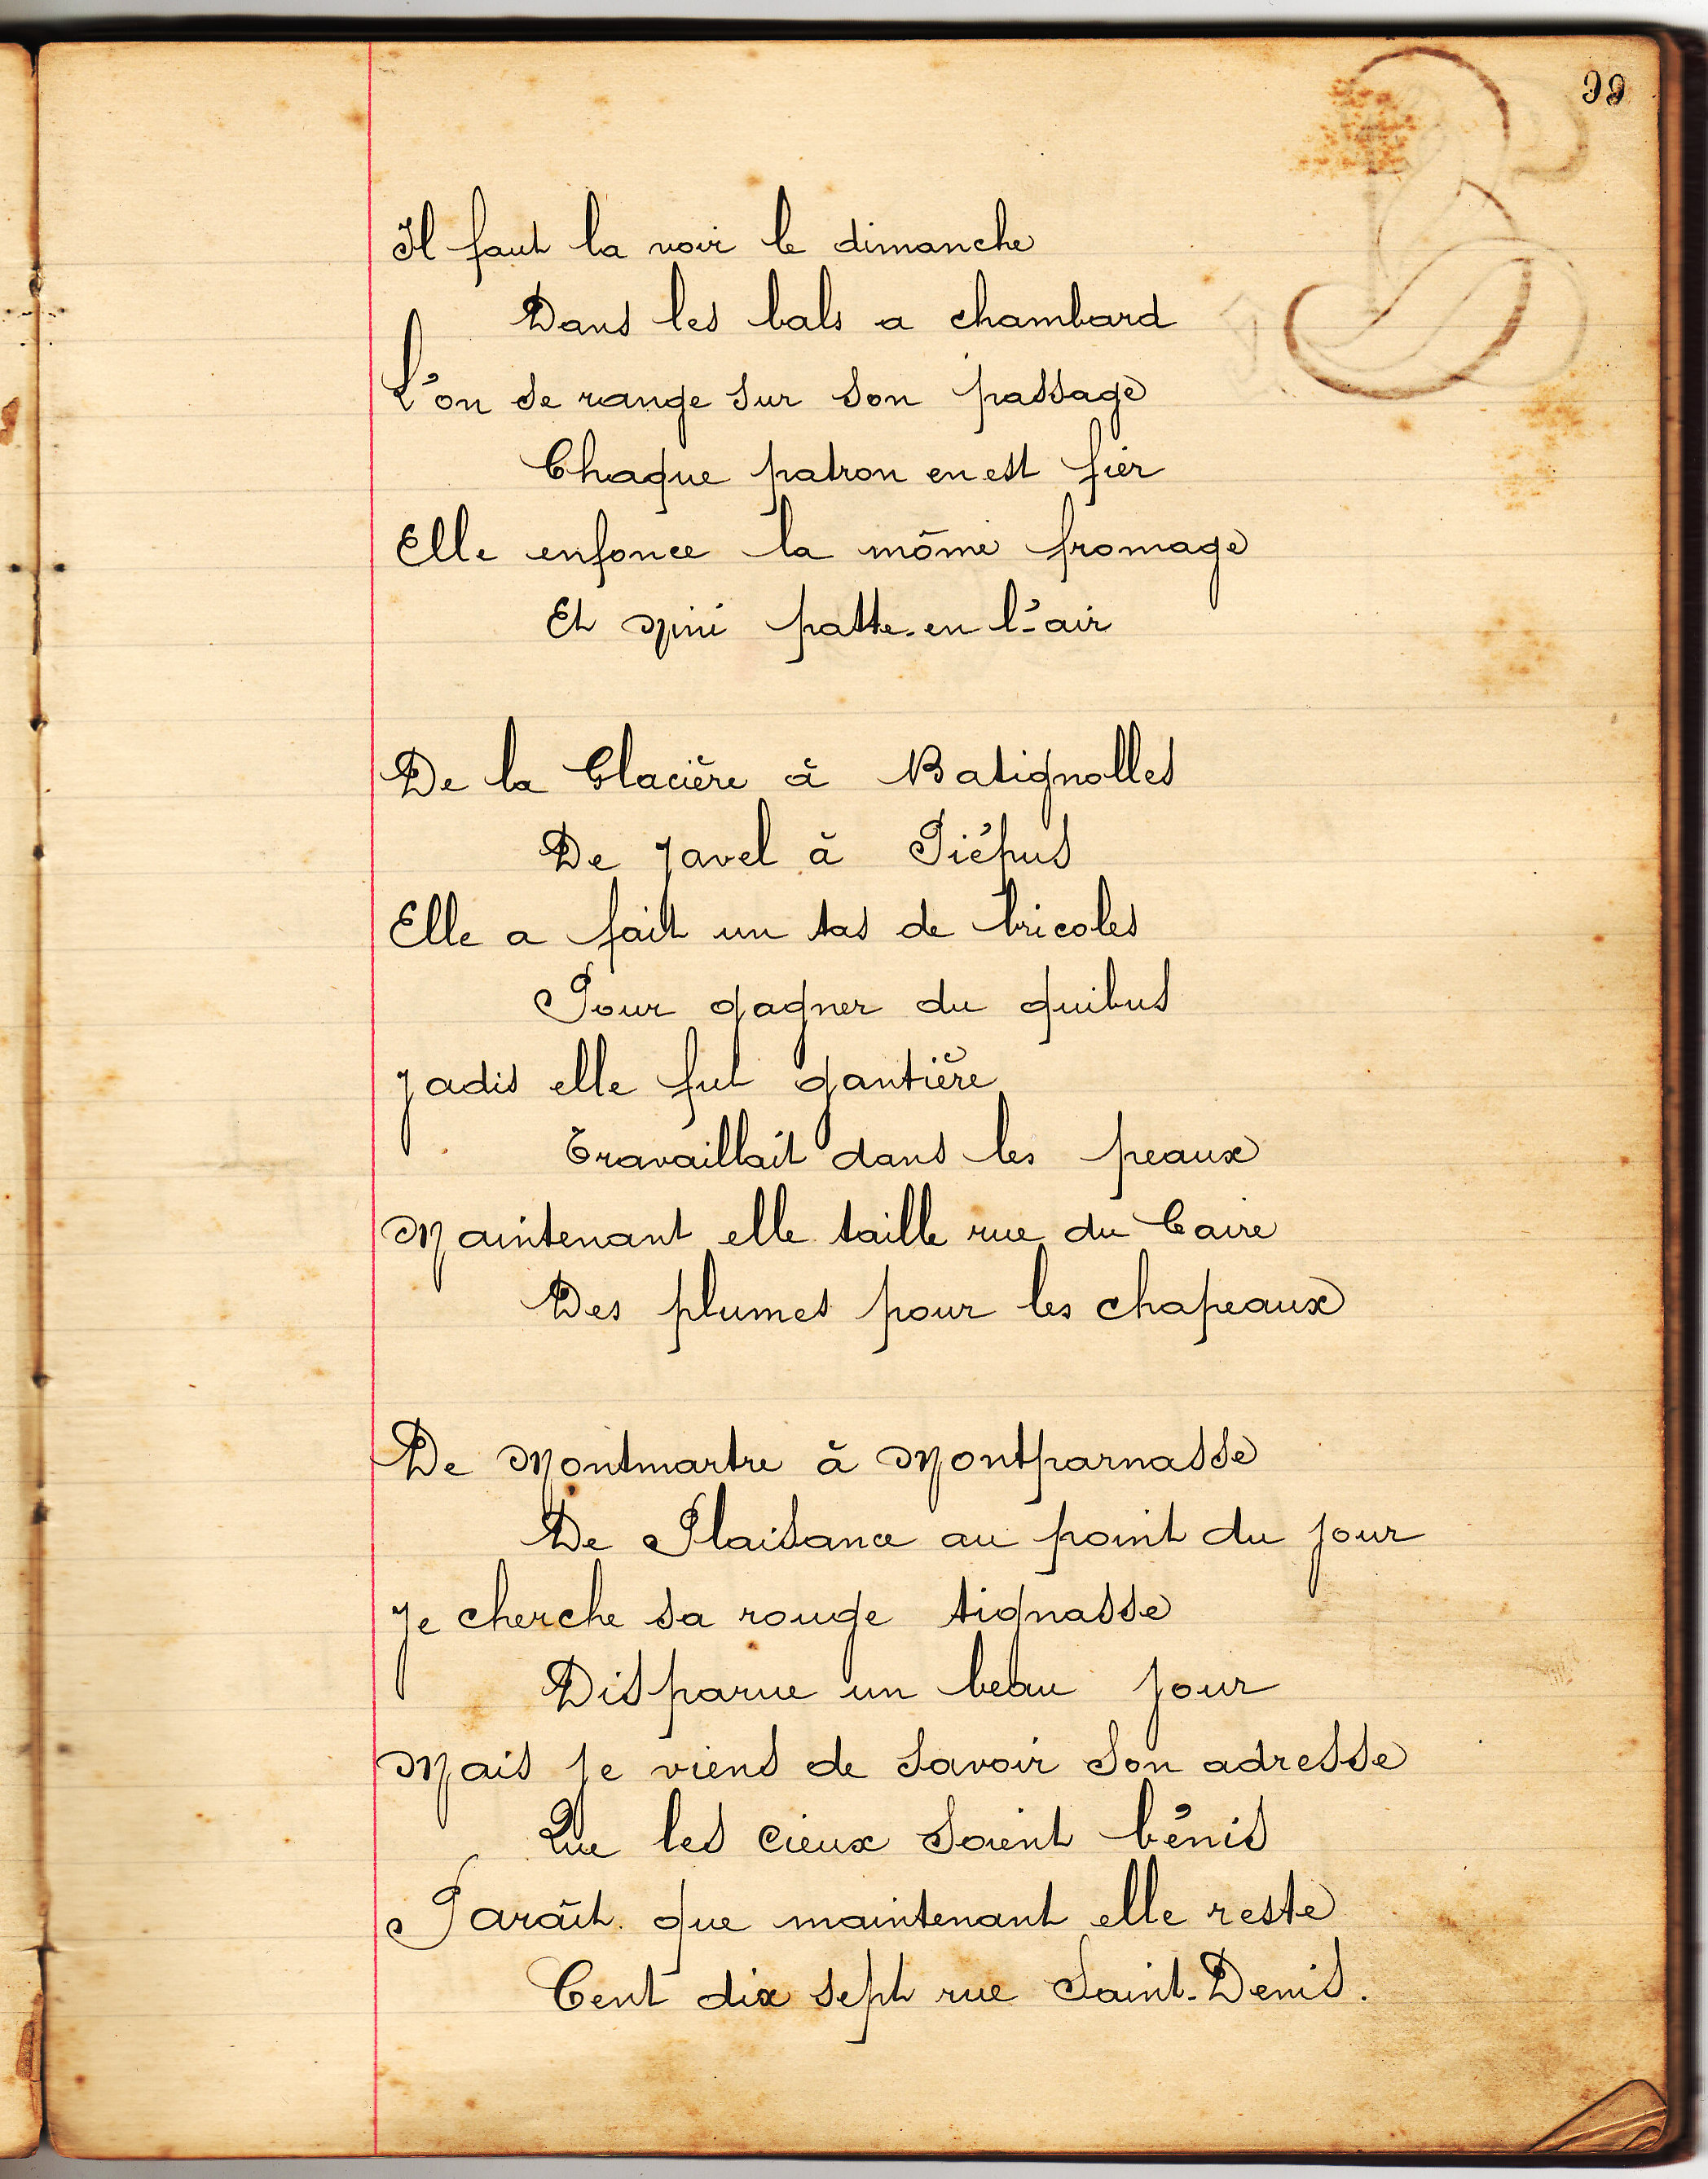 99
Il faut la voir le dimanche
Dans les bals a chambard
L'on se range sur son passage
Chaque patron en est fier
Elle enfonce la môme fromage
Et Nini patte-en l'air
De la Glacière à Batignolles
De Javel à Picpus
Elle a fait un tas de bricoles
Pour gagner du quibus
Jadis elle fut gantière
Travaillait dans les peaux
Maintenant elle taille rue du Caire
Des plumes pour les chapeaux
De Montmartre à Montparnasse
De Plaisance au point du jour
Je cherche sa rouge tignasse
Disparue un beau jour
Mais je viens de savoir son adresse
Que les cieux soient bénis
Parait que maintenant elle reste
Cent dix sept rue Saint-Denis.